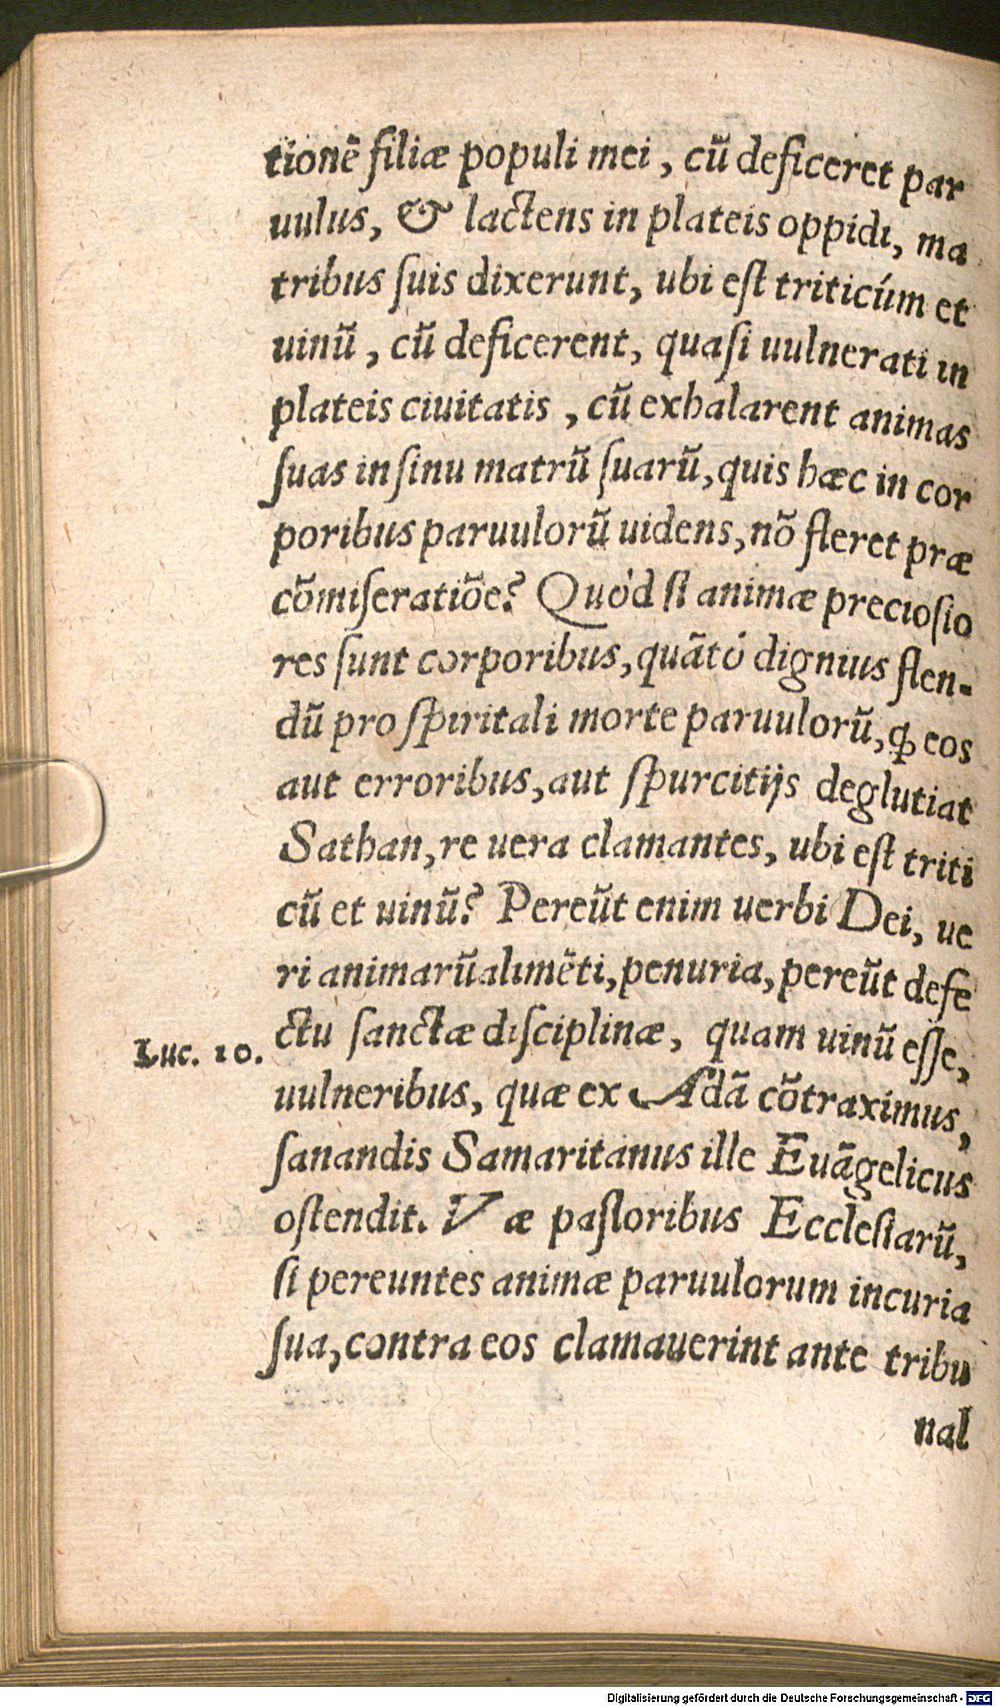 tionē filiæ populi mei, cū deficeret par
uulus, & lactens in plateis oppidi, ma
tribus suis dixerunt, ubi est triticúm et
uinū, cū deficerent, quasi uulnerati in
plateis ciuitatis, cū exhalarent animas
suas in sinu matrū suarū, quis hæc in cor
poribus paruulorū uidens, nō fleret præ
cōmiseratiōe? Quòd si animæ preciosio
res sunt corporibus, quātó dignius flen-
dū pro spiritali morte paruulorū, ꝙ eos
aut erroribus, aut spurcitijs deglutiat
Sathan, re uera clamantes, ubi est triti
cū et uinū? Pereūt enim uerbi Dei, ue
ri animarū alimēti, penuria, pereūt defe
ctu sanctæ disciplinæ, quam uinū esse,
Luc. 10.
uulneribus, quæ ex Adā cōtraximus,
sanandis Samaritanus ille Euāgelicus
ostendit. Væ pastoribus Ecclesiarū,
si pereuntes animæ paruulorum incuria
sua, contra eos clamauerint ante tribu
nal
Digitalisierung gefördert durch die Deutsche Forschungsgemeinschaft - DFG